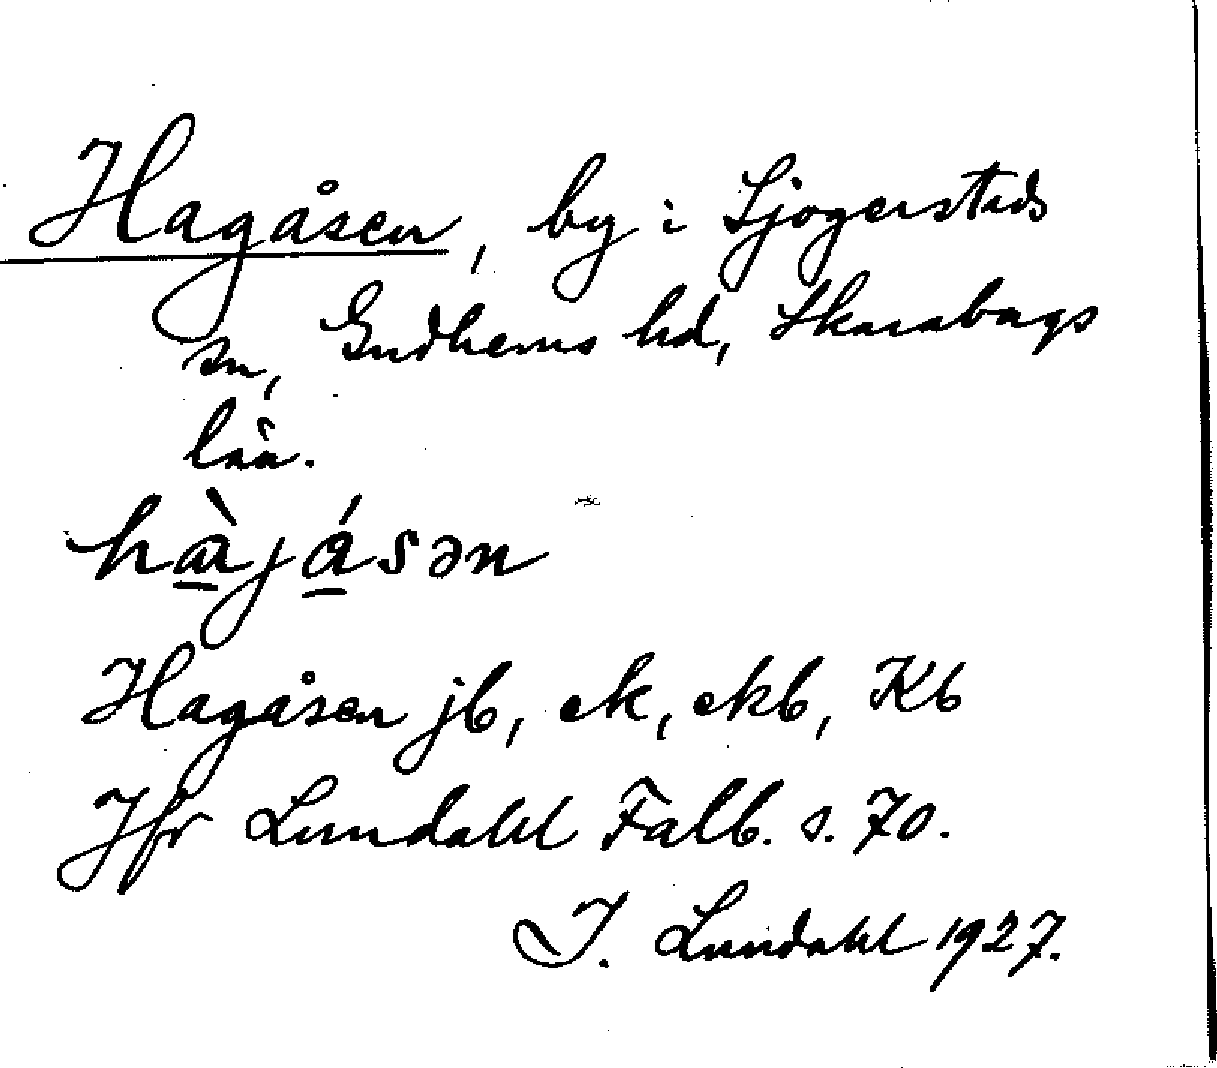 Hagåsen, by i Sjogerstads
sn, Gudhems hd, Skarabogs
län.
hàjásən
Hagåsen jb, ek, ekb, Kb
Jfr Lundahl Falb. s. 70.
I. Lundahl 1927.